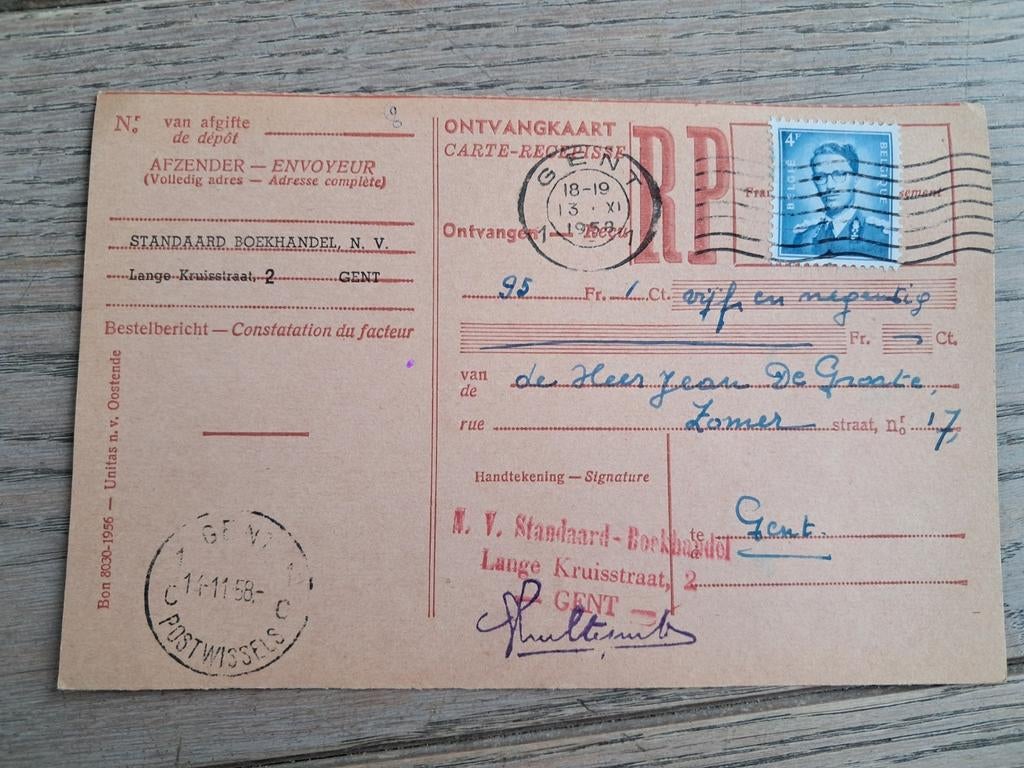 Nr. van afgifte
o de dépôt
AFZENDER — ENVOYEUR
(Volledig adres — Adresse complète)
STANDAARD BOEKHANDEL, N. V.
Lange Kruisstraat, 2 GENT
Bestelbericht — Constatation du facteur
Bon 8030-1956 — Unitas n. v. Oostende
1 GENT 1
C 14-11-58.- C
POSTWISSELS
ONTVANGKAART
CARTE-RECEPISSE
RP
GENT
18-19
13 · XI
1958
1 1
4F
BELGIË BELGIQUE
Ontvangen — Reçu
95 Fr. / Ct. vijf en negentig
Fr. — Ct.
van de Heer Jean De Groote,
de
rue Zomer straat, nr. 17,
o
Handtekening — Signature
N. V. Standaard-Boekhandel
Lange Kruisstraat, 2
— GENT —
te Gent.
à